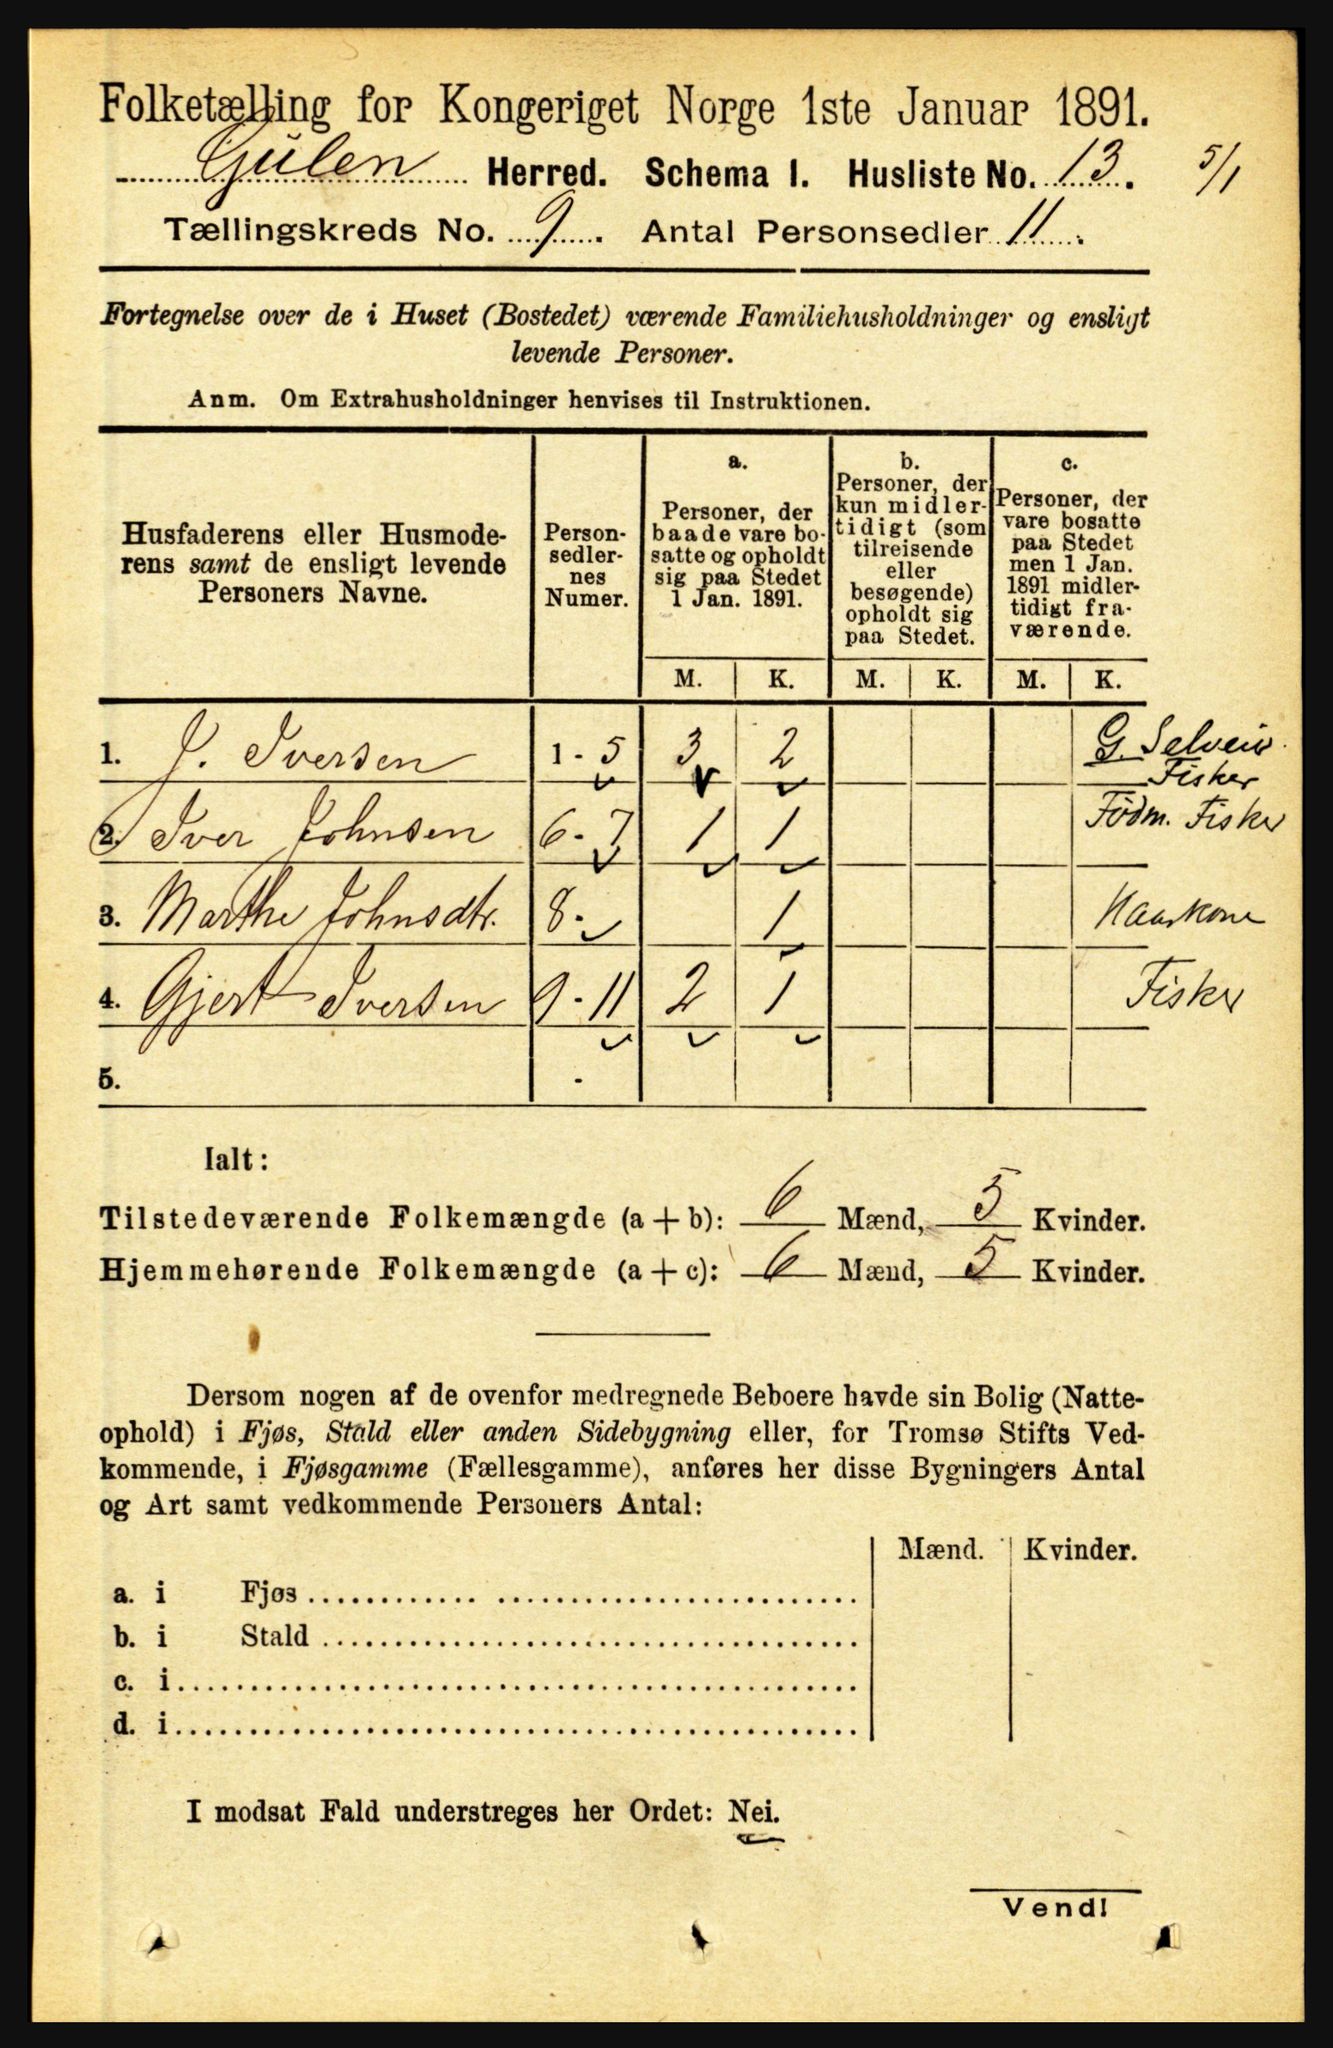 Folketælling for Kongeriget Norge 1ste Januar 1891.
Gulen Herred. Schema I. Husliste No. 13. 5/1
Tællingskreds No. 9. Antal Personsedler 11.
Fortegnelse over de i Huset (Bostedet) værende Familiehusholdninger og ensligt
levende Personer.
Anm. Om Extrahusholdninger henvises til Instruktionen.
Husfaderens eller Husmode-
rens samt de ensligt levende
Personers Navne.
Person-
sedler-
nes
Numer.
a.
Personer, der
baade vare bo-
satte og opholdt
sig paa Stedet
1 Jan. 1891.
b.
Personer, der
kun midler-
tidigt (som
tilreisende
eller
besøgende)
opholdt sig
paa Stedet.
c.
Personer, der
vare bosatte
paa Stedet
men 1 Jan.
1891 midler-
tidigt fra-
værende.
M. K. M. K. M. K.
1. J. Iversen 1 - 5 3 2 G. Selveier
Fisker
2. Iver Johnsen 6 - 7 1 1 Födm. Fisker
3. Marthe Johnsdtr. 8 - 1
4. Gjert Iversen 9 - 11 2 1 Fisker
5. -
Ialt:
Tilstedeværende Folkemængde (a + b): 6 Mænd, 5 Kvinder.
Hjemmehørende Folkemængde (a + c): 6 Mænd, 5 Kvinder.
Dersom nogen af de ovenfor medregnede Beboere havde sin Bolig (Natte-
ophold) i Fjøs, Stald eller anden Sidebygning eller, for Tromsø Stifts Ved-
kommende, i Fjøsgamme (Fællesgamme), anføres her disse Bygningers Antal
og Art samt vedkommende Personers Antal:
Mænd. Kvinder.
a. i Fjøs
b. i Stald
c. i
d. i
I modsat Fald understreges her Ordet: Nei.
Vend!